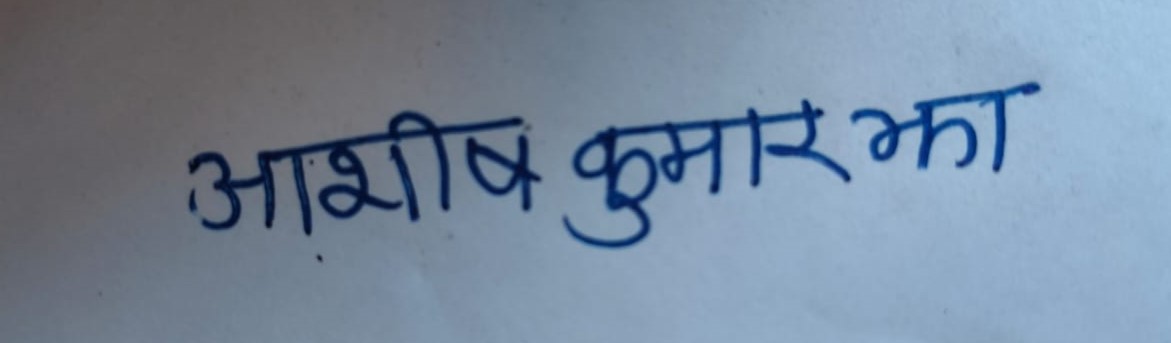 आशीष कुमार झा